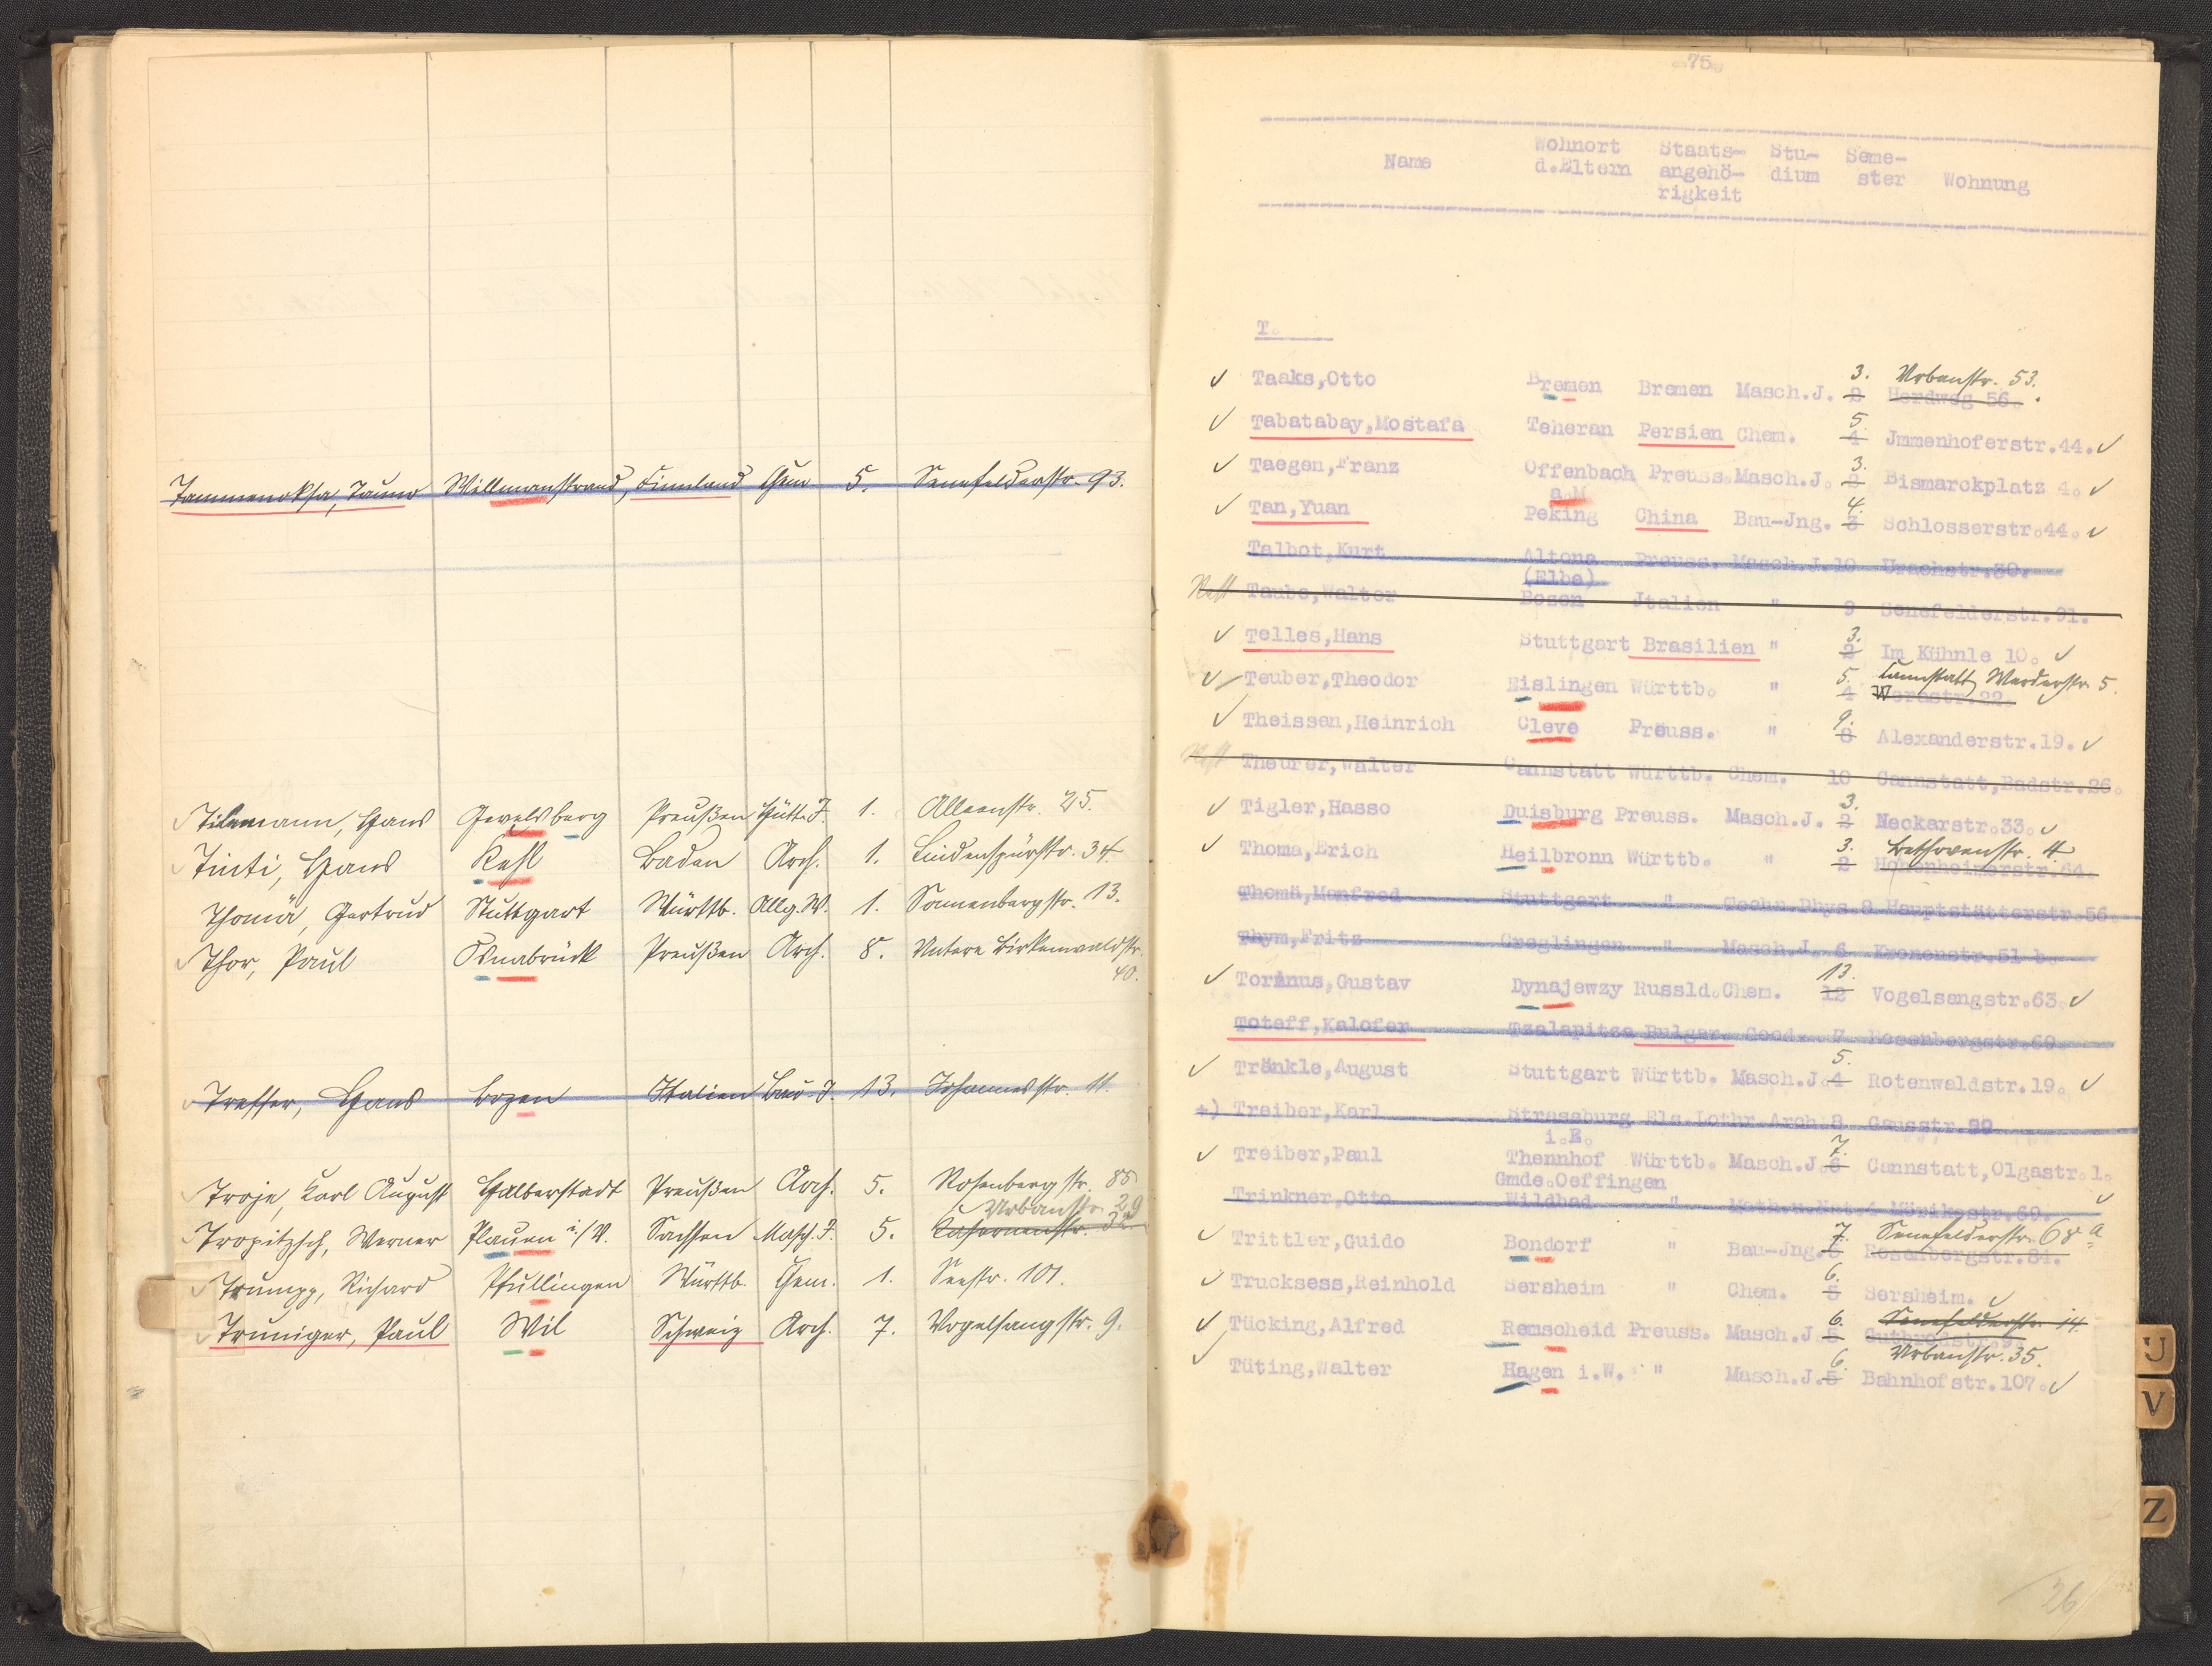 Tammenoksa, Tauno Willmanstrand, Finnland Chem. 5. Senefelderstr. 93.
Tilemann, Hans Gevelsberg Preußen Hütt. J. 1. Alleenstr. 25.
Tinti, Hans Kehl Baden Arch. 1. Lindenspürstr. 34.
Thomä, Gertrud Stuttgart Württb. Allg. W. 1. Sonnenbergstr. 13.
Thor, Paul Osnabrück Preußen Arch. 8. Untere Birkenwaldstr.
40.
Treffer, Hans Bozen Italien Bau-J. 13. Johannesstr. 11.
Troje, Karl August Halberstadt Preußen Arch. 5. Rosenbergstr. 85
Urbanstr. 29
Tropitzsch, Werner Plauen i/V. Sachsen Masch. J. 5. Kasernenstr.
Trumpp, Richard Pfullingen Württb. Chem. 1. Seestr. 101.
Truniger, Paul Wil Schweiz Arch. 7. Vogelsangstr. 9.
75
Name Wohnort d.Eltern Staats-angehö-rigkeit Stu-dium Seme-ster Wohnung
T.
3. Urbanstr. 53.
Taaks,Otto Bremen Bremen Masch.J. 2 Herdweg 56.
5.
Tabatabay,Mostafa Teheran Persien Chem. 4 Jmmenhoferstr.44.
3.
Taegen,Franz Offenbach Preuss.Masch.J. 2 Bismarckplatz 4.
a.M. 4.
Tan,Yuan Peking China Bau-Jng. 3 Schlosserstr.44.
Talbot,Kurt Altona Preuss. Masch.J.10 Urachstr.30.
(Elbe)
Taube,Walter Bozen Jtalien " 9 Senefelderstr.91.
3.
Telles,Hans Stuttgart Brasilien " 2 Im Kühnle 10.
5. Cannstatt, Werderstr. 5.
Teuber,Theodor Eislingen Württb. " 4 Werastr.22.
9.
Theissen,Heinrich Cleve Preuss. " 8 Alexanderstr.19.
Theurer,Walter Cannstatt Württb. Chem. 10 Cannstatt,Badstr.26.
3.
Tigler,Hasso Duisburg Preuss. Masch.J. 2 Neckarstr.33.
3. Bethovenstr. 4
Thoma,Erich Heilbronn Württb. " 2 Hohenheimerstr.64.
Thomä,Manfred Stuttgart " Techn.Phys.8 Hauptstätterstr.56.
Thym,Fritz Creglingen " Masch.J. 6 Kronenstr.51 b.
13.
Torinus,Gustav Dynajewzy Russld.Chem. 12 Vogelsangstr.63.
Toteff,Kalofer Tzalapitza Bulgar. Geod. 7 Rosenbergstr.69.
5.
Tränkle,August Stuttgart Württb. Masch.J.4 Rotenwaldstr.19.
+) Treiber,Karl Strassburg Els.Lothr.Arch.8 Gausstr.99
i.E. 7.
Treiber,Paul Thennhof Württb. Masch.J.6 Cannstatt,Olgastr.1.
Gmde.Oeffingen
Trinkner,Otto Wildbad " Math.u.Nat.4 Mörikestr.69.
7. Senefelderstr. 68 a
Trittler,Guido Bondorf " Bau-Jng.6 Rosenbergstr.84.
6.
Trucksess,Reinhold Sersheim " Chem. 5 Sersheim.
6. Senefelderstr. 14.
Tücking,Alfred Remscheid Preuss. Masch.J.5 Gutbrodstr.9.
6. Urbanstr. 35.
Tüting,Walter Hagen i.W. " Masch.J.5 Bahnhofstr.107.
U
V
Z
26